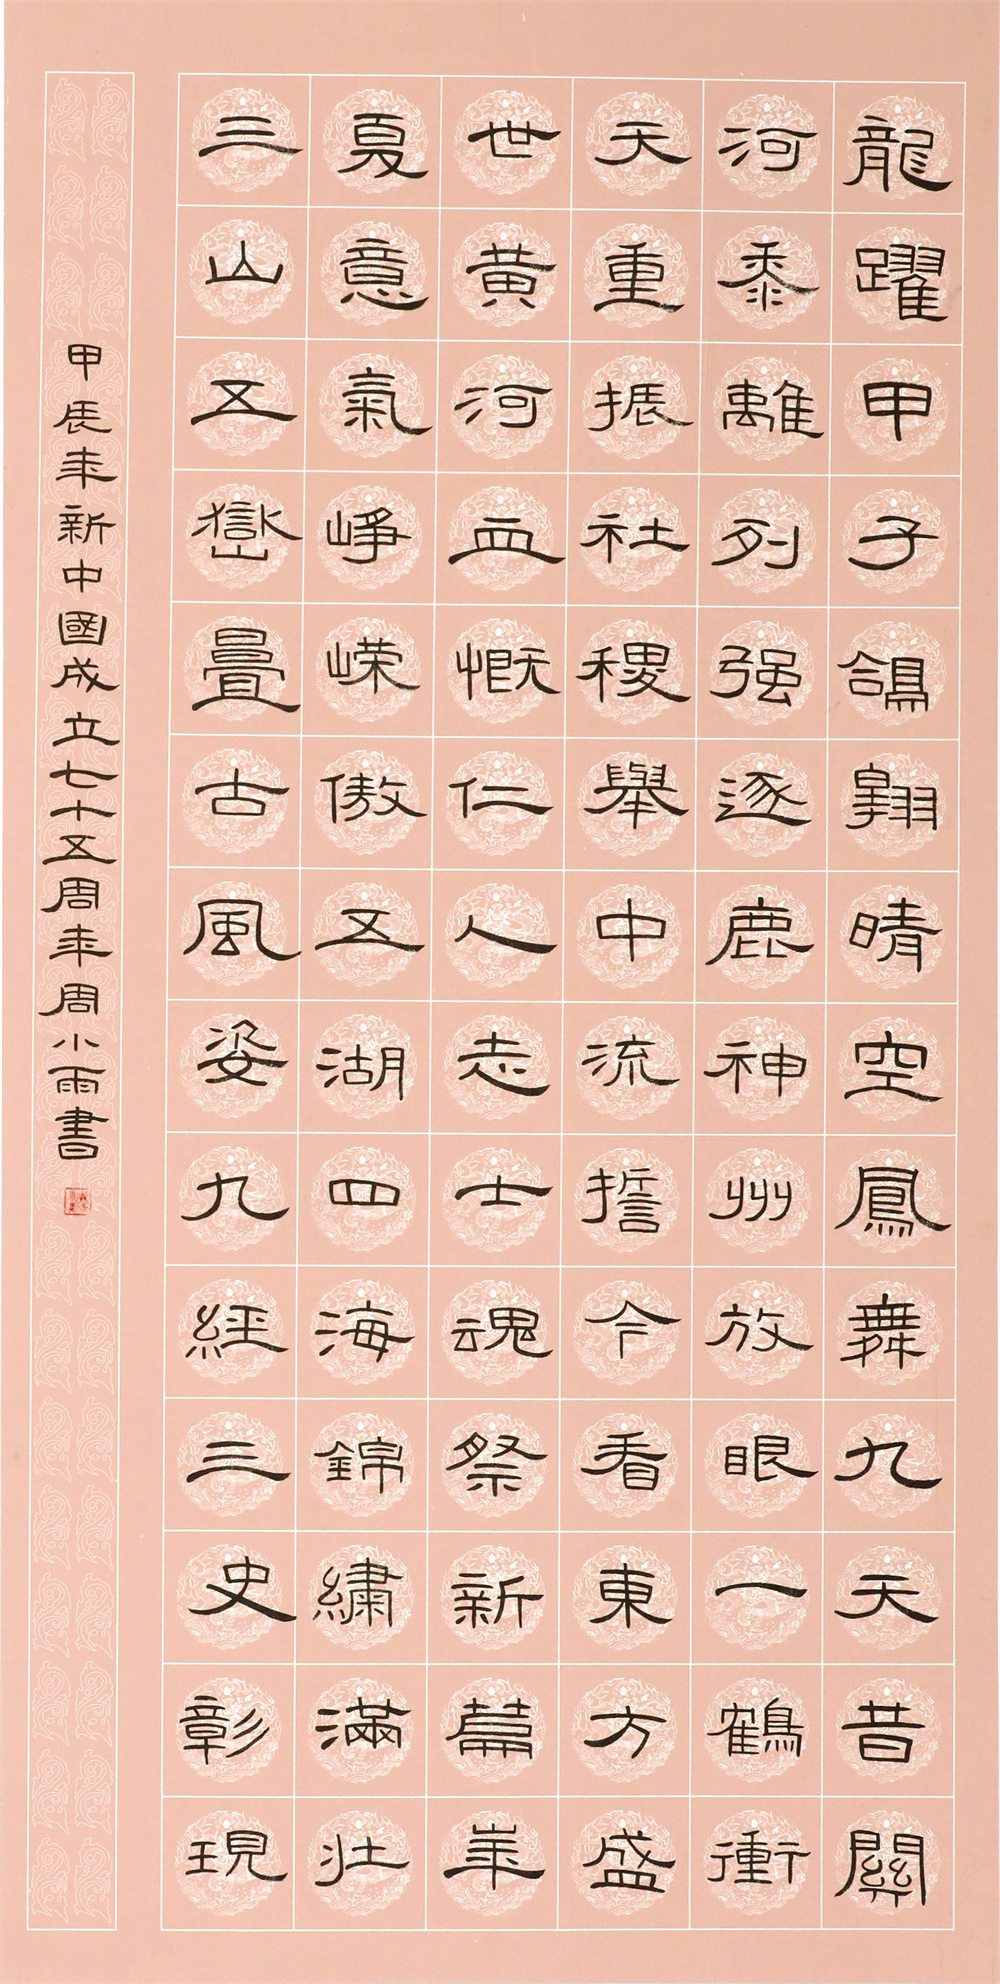 龍躍甲子鴿翱晴空鳳舞九天昔關
河黍離列强逐鹿神州放眼一鶴衝
天重振社稷舉中流誓今看東方盛
世黄河血慨仁人志士魂祭新篇羊
夏意氣崢嶸傲五湖四海錦繡滿壯
三山五嶽疊古風姿九經三史彰現
甲辰年新中國成立七十五周年周小雨書